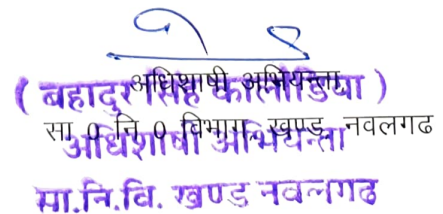 अधिशाषी अभियन्ता,
( बहादुर सिंह )
सा 0 नि 0 विभाग, खण्ड, नवलगढ
अधिशाषी अभियन्ता
सा.नि.वि. खण्ड नवलगढ